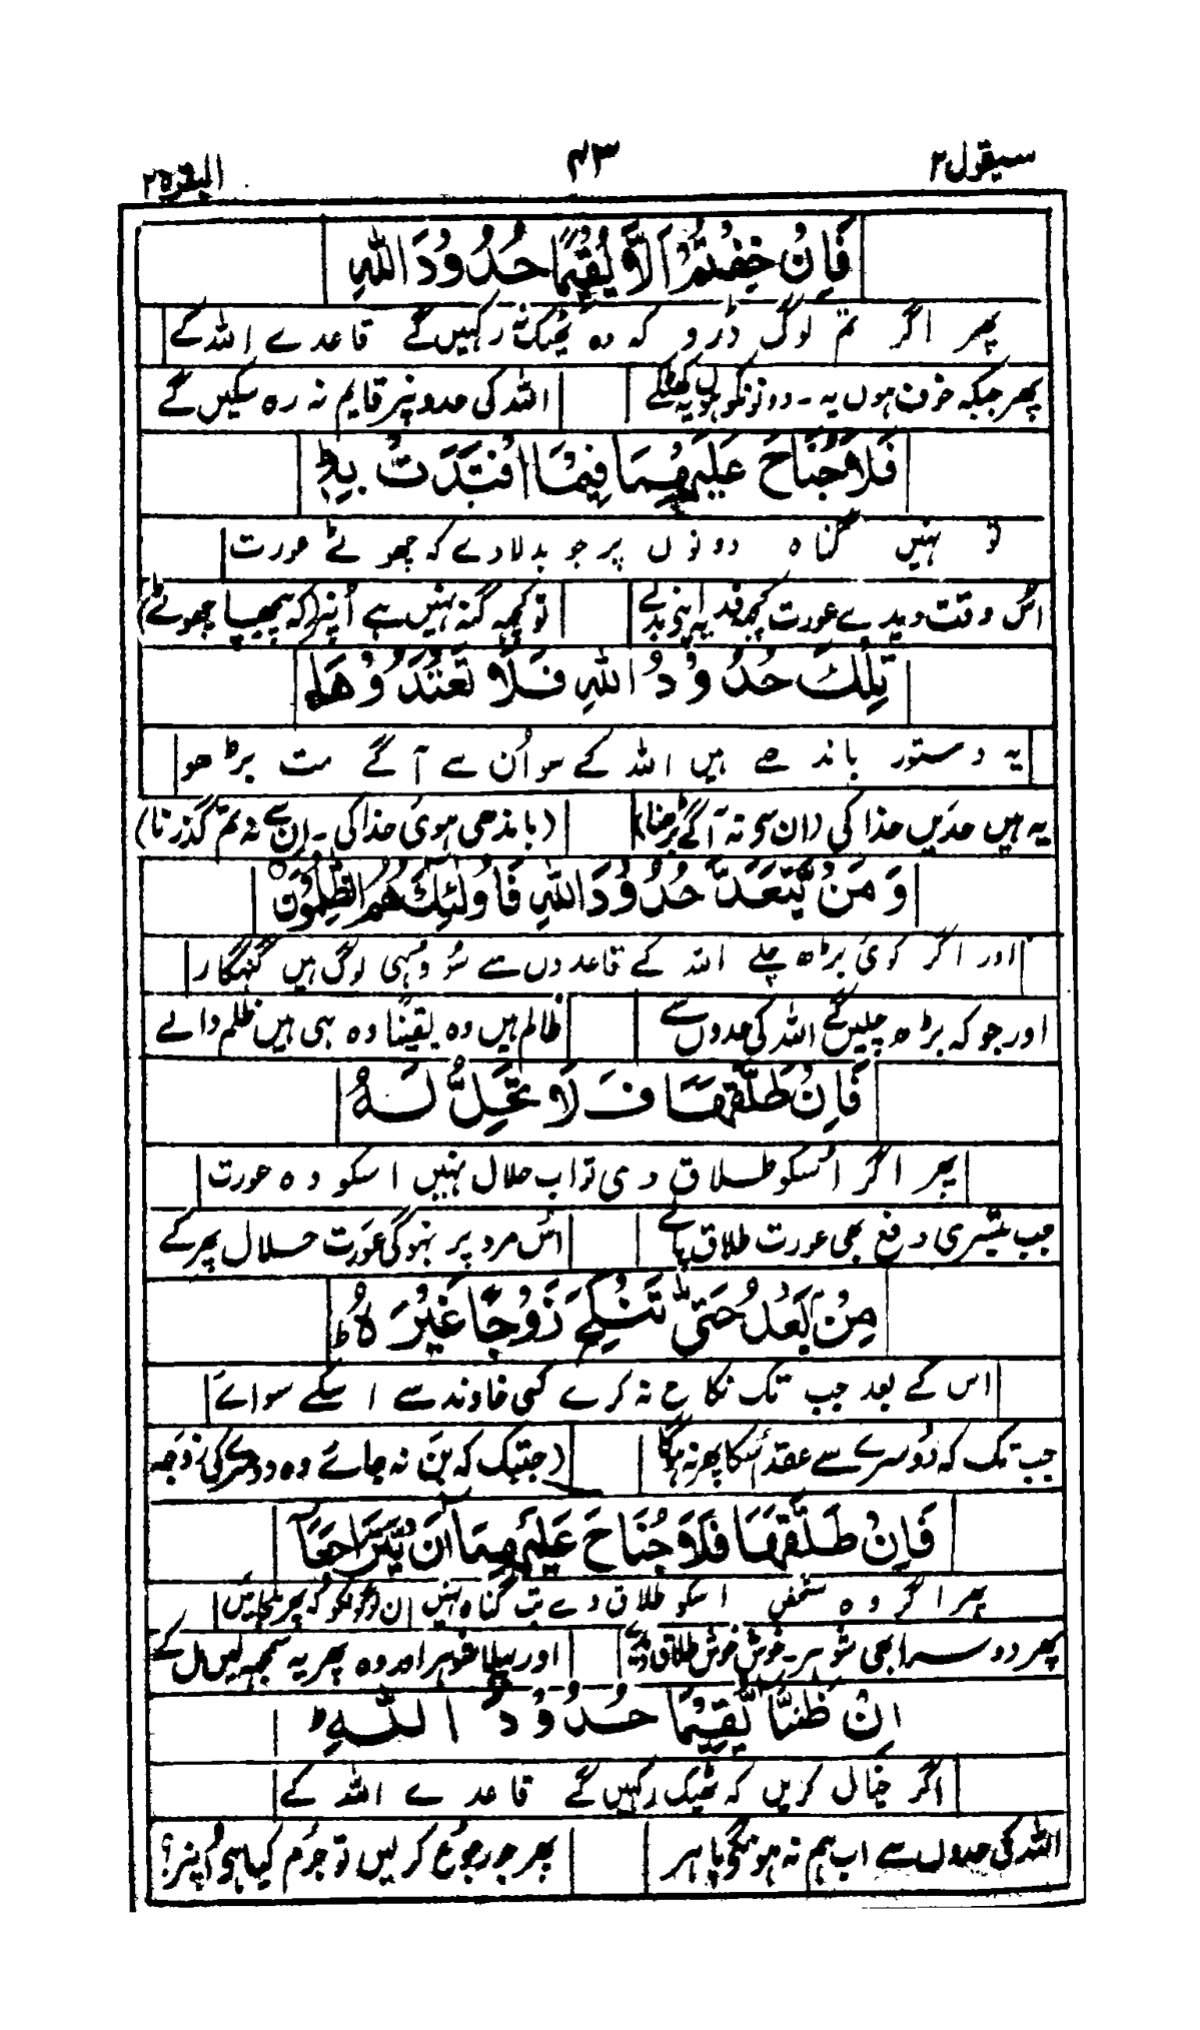 سیقول ۲
۴۳
البقرة ۲
فَاِنْ خِفْتُمْ اَلَّا يُقِيْمَا حُدُوْدَ اللّٰهِ
پھر اگر تم لوگ ڈرو کہ وہ ٹھیک نہ رکہیں گے قاعدے اللہ کے
پھر جبکہ خوف ہوں یہ۔ دونونکو ہوں یہ کھٹکے
اللہ کی حدونپر قایم نہ رہ سکیں گے
فَلَا جُنَاحَ عَلَيْهِمَا فِيْمَا افْتَدَتْ بِهٖ ط
تو نہیں گناہ دونوں پر جو بدلا دے کہ چھوٹے عورت
اُس وقت دیدے عورت کچھ فدیہ اپنی بدلے
تو کچہہ گنہ نہیں ہے اُنپر (کہ پیچھا چھوٹے)
تِلْكَ حُدُوْدُ اللّٰهِ فَلَا تَعْتَدُوْهَا
یہ دستور باندھے ہیں اللہ کے سو اُن سے آگے مت بڑھو
یہ ہیں حدیں خدا کی (ان سی نہ آگے بڑھنا)
(باندھی ہوئی خدا کی۔ اِن سے نہ تم گذرنا)
وَ مَنْ يَّتَعَدَّ حُدُوْدَ اللّٰهِ فَاُولٰٓئِكَ هُمُ الظّٰلِمُوْنَ
اور اگر کوئی بڑھ چلے اللہ کے قاعدوں سے سُو وہی لوگ ہیں گنہگار
اور جو کہ بڑھ چلیں گے اللہ کی حدوں سے
ظالم ہیں وہ یقیناً وہ ہی ہیں ظلم والے
فَاِنْ طَلَّقَهَا فَلَا تَحِلُّ لَهٗ
پھر اگر اُسکو طلاق دی تو اب حلال نہیں اسکو وہ عورت
جب تیسری دفع بھی عورت طلاق پائے
اُس مرد پر نہوگی عورت حلال پھر کے
مِنْۢ بَعْدُ حَتّٰى تَنْكِحَ زَوْجًا غَيْرَهٗ ط
اس کے بعد جب تک نکاح نہ کرے کسی خاوند سے اسکے سواے
جب تک کہ دوسرے سے عقد اُسکا پھر نہ ہوگا
(جبتک کہ بن نہ جائے وہ دوسرے کی زوجہ
فَاِنْ طَلَّقَهَا فَلَا جُنَاحَ عَلَيْهِمَا اَنْ يَّتَرَاجَعَا
پھر اگر وہ شخص اسکو طلاق دے تب گناہ نہیں ان دونوکو کہ پھر ملجائیں
پھر دوسرا بھی شوہر۔ خوش خوش طلاق دیدے
اور پہلا شوہر اور وہ پھر یہ سمجھ لیں مل کے
اِنْ ظَنَّا اَنْ يُّقِيْمَا حُدُوْدَ اللّٰهِ ط
اگر خیال کریں کہ ٹھیک رکہیں گے قاعدے اللہ کے
اللہ کی حدوں سے اب ہم نہ ہونگی باہر
پھر جو رجوع کرلیں تو جرم کیا ہی اُنپر؟